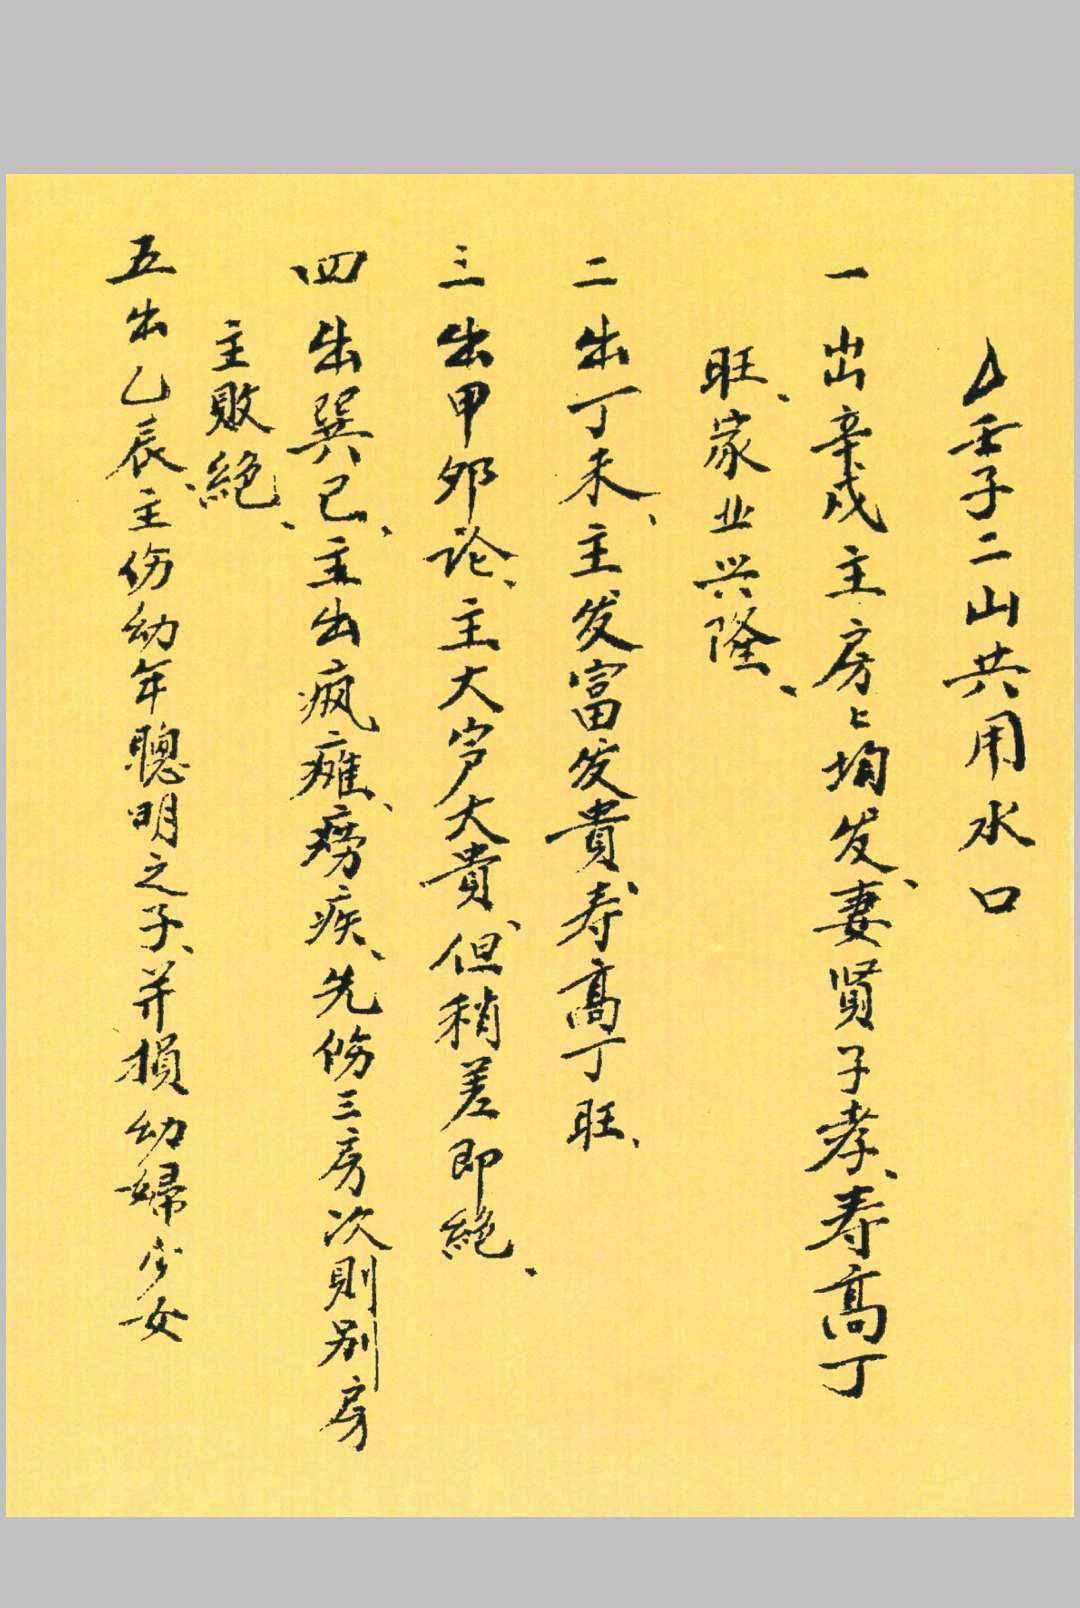 △壬子二山共用水口
一出辛戍主房々均发、妻贤子孝、寿高丁
旺、家业兴隆、
二出丁未、主发富发貴、寿高丁旺、
三出甲卯论、主大富大貴、但稍差即絶、
四出巽已、主出疯瘫、痨疾、先伤三房次則别房
主败絶、
五出乙辰、主伤幼年聰明之子、并損幼婦少女